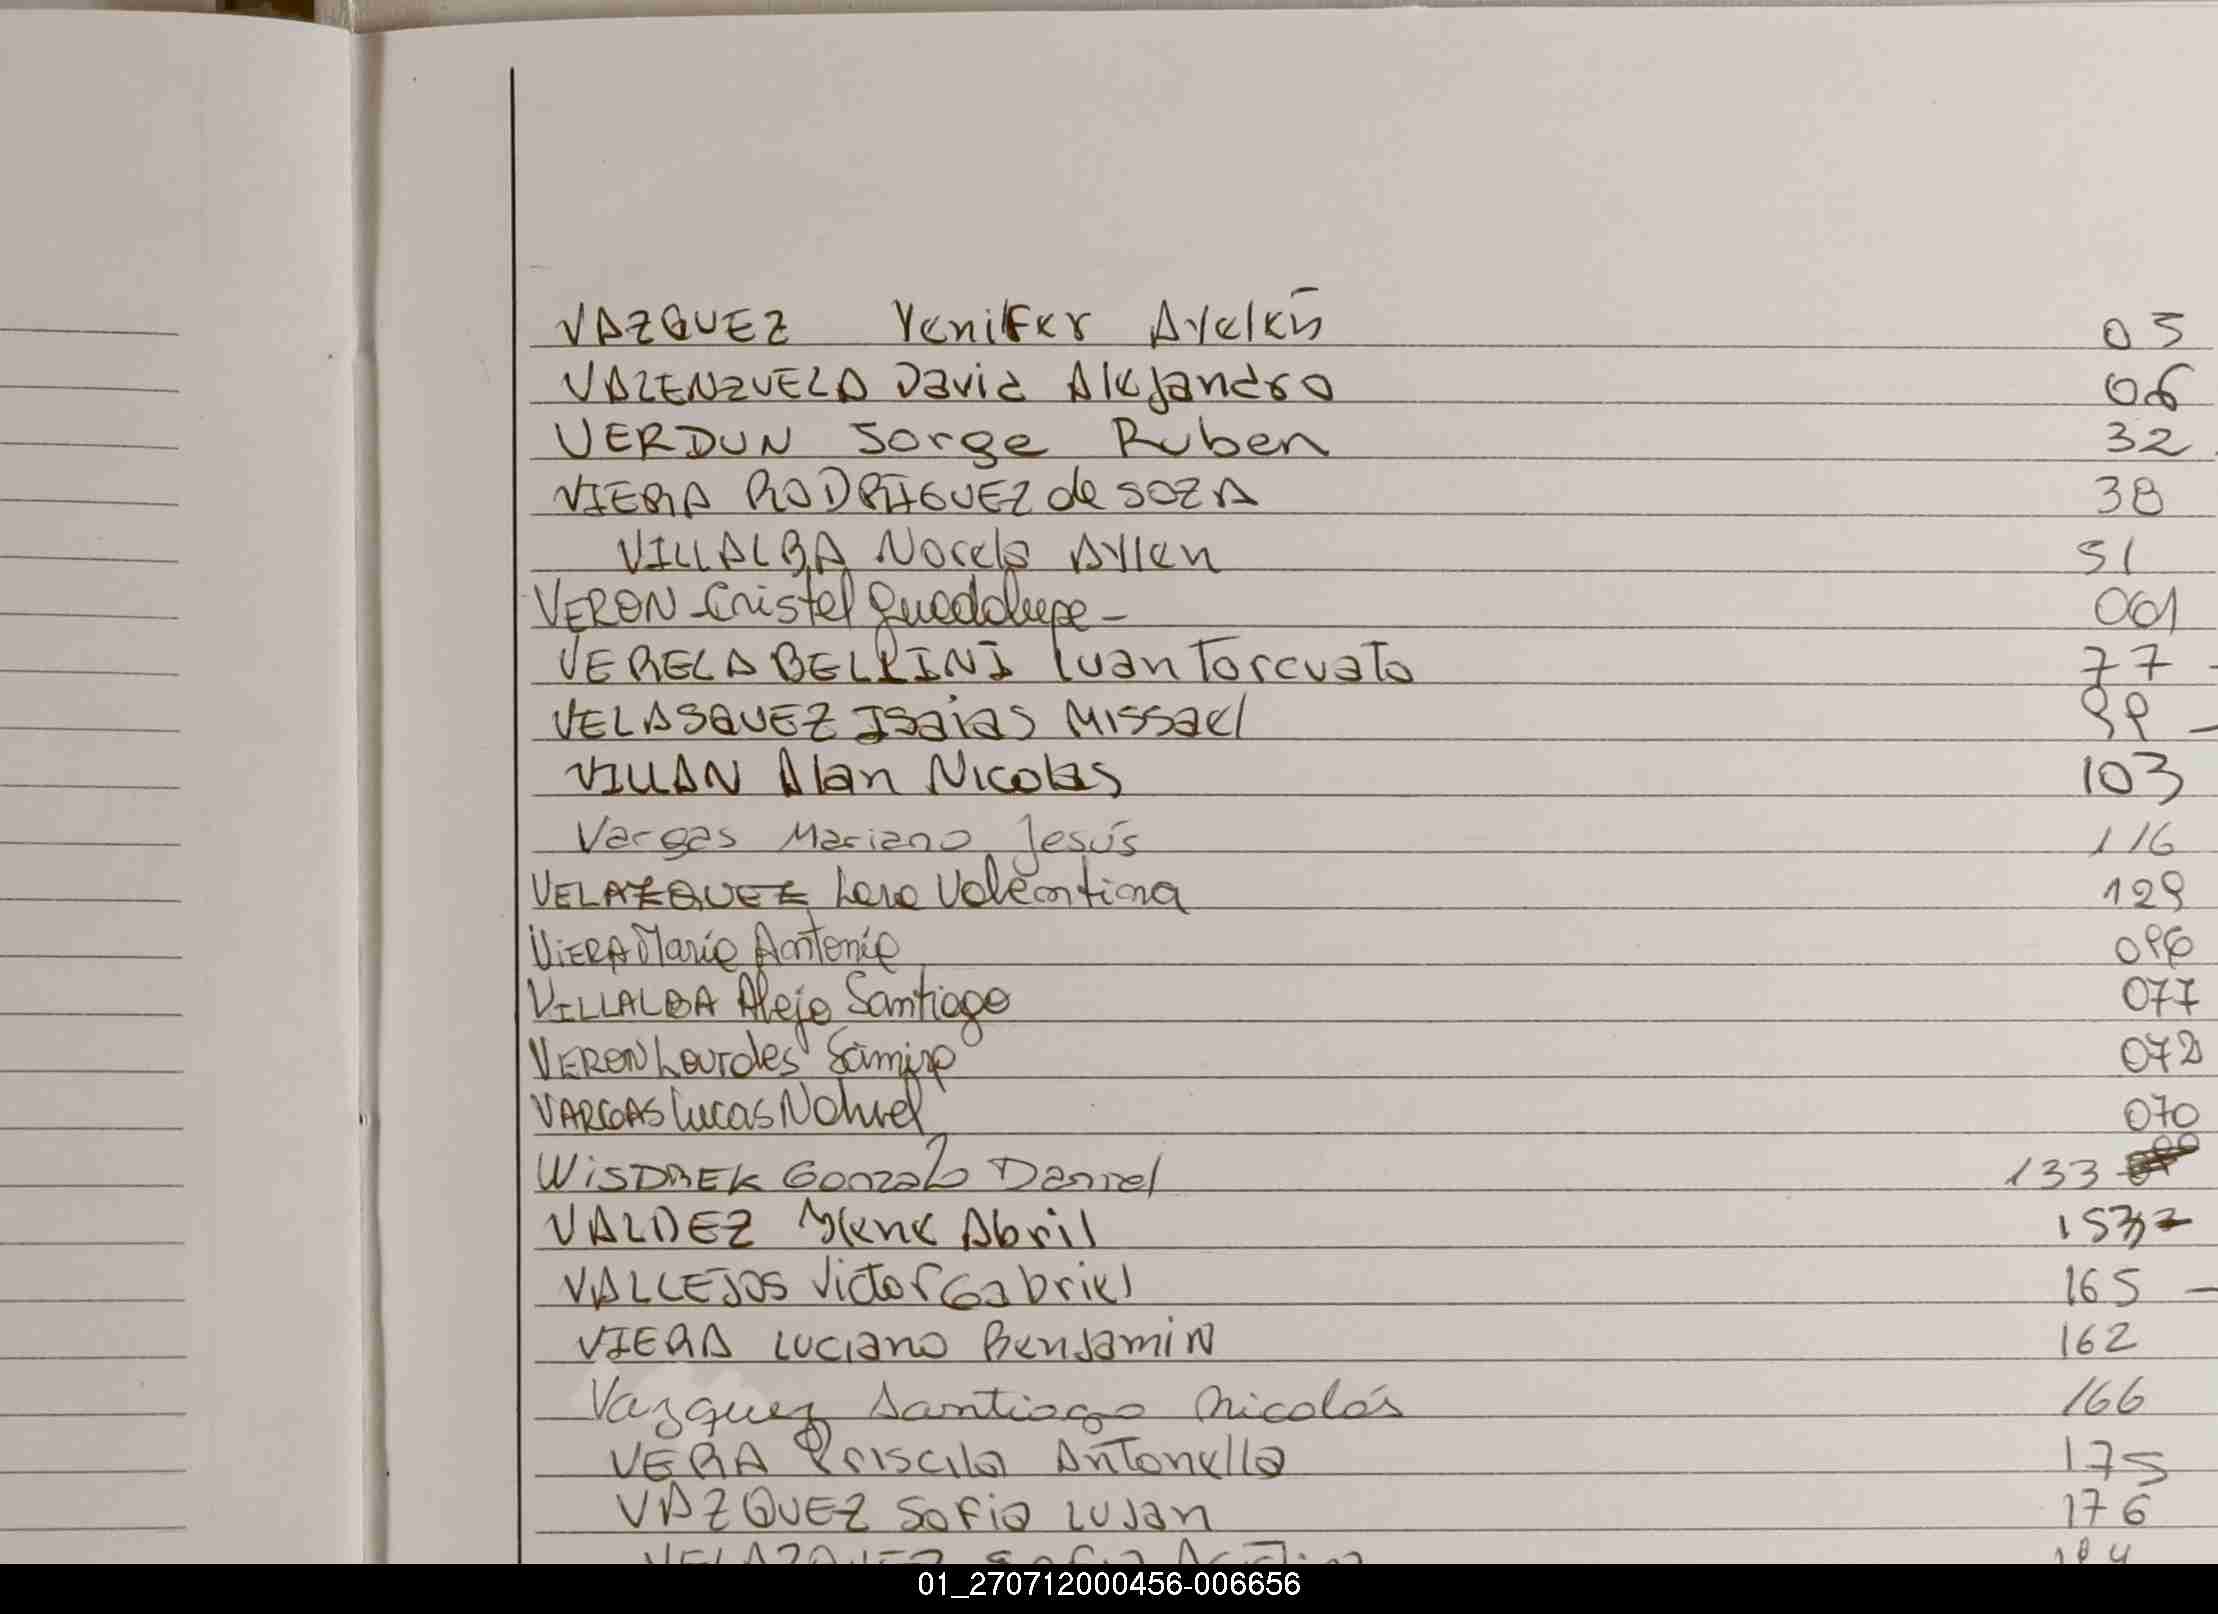 VAZQUEZ Yenifer Ayelén 05
VALENZUELA David Alejandro 06
VERDUN Jorge Ruben 32
VIERA RODRIGUEZ de SOZA 38
VILLALBA Norela Aylen 51
VERON Cristel Guadalupe - 061
VERELA BELLINI Juan Torcuato 77 -
VELASQUEZ Isaias Missael 99 -
VILLAN Alan Nicolas 103
Vargas Mariano Jesús 116
VELAZQUEZ Lara Valentina 129
VIERA María Antonia 096
VILLALBA Alejo Santiago 077
VERON Lourdes Samira 072
VARGAS Lucas Nahuel 070
WISDREK Gonzalo Daniel 133
VALDEZ Abril
VALLEJOS Victor Gabriel 165 -
VIERA Luciano Benjamin 162
Vazquez Santiago Nicolás 166
VERA Priscila Antonella 175
VAZQUEZ Sofia Lujan 176
VELAZQUEZ Sofia
01_270712000456-006656